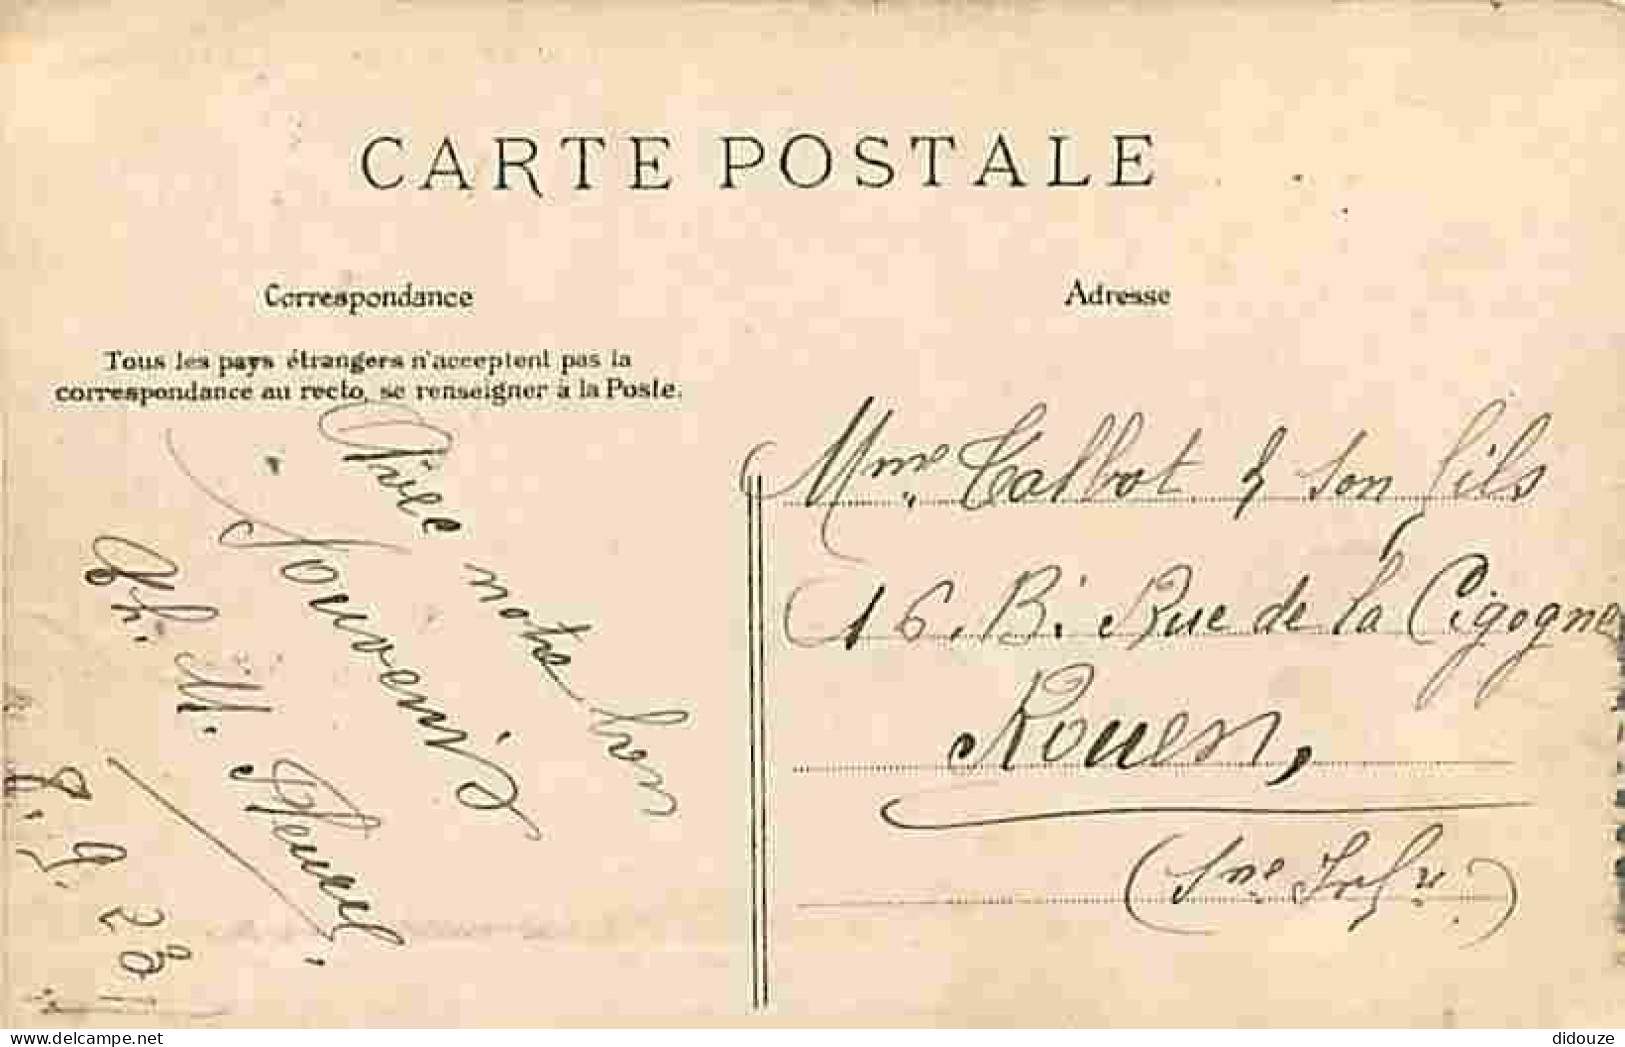 CARTE POSTALE
Correspondance
Tous les pays étrangers n'acceptent pas la
correspondance au recto, se renseigner à la Poste.
Avec notre bon
Souvenir
8.9.28
Adresse
Mme Talbot & son fils
16. B. Rue de la Cigogne
Rouen,
(Sne Infre.)
didouze